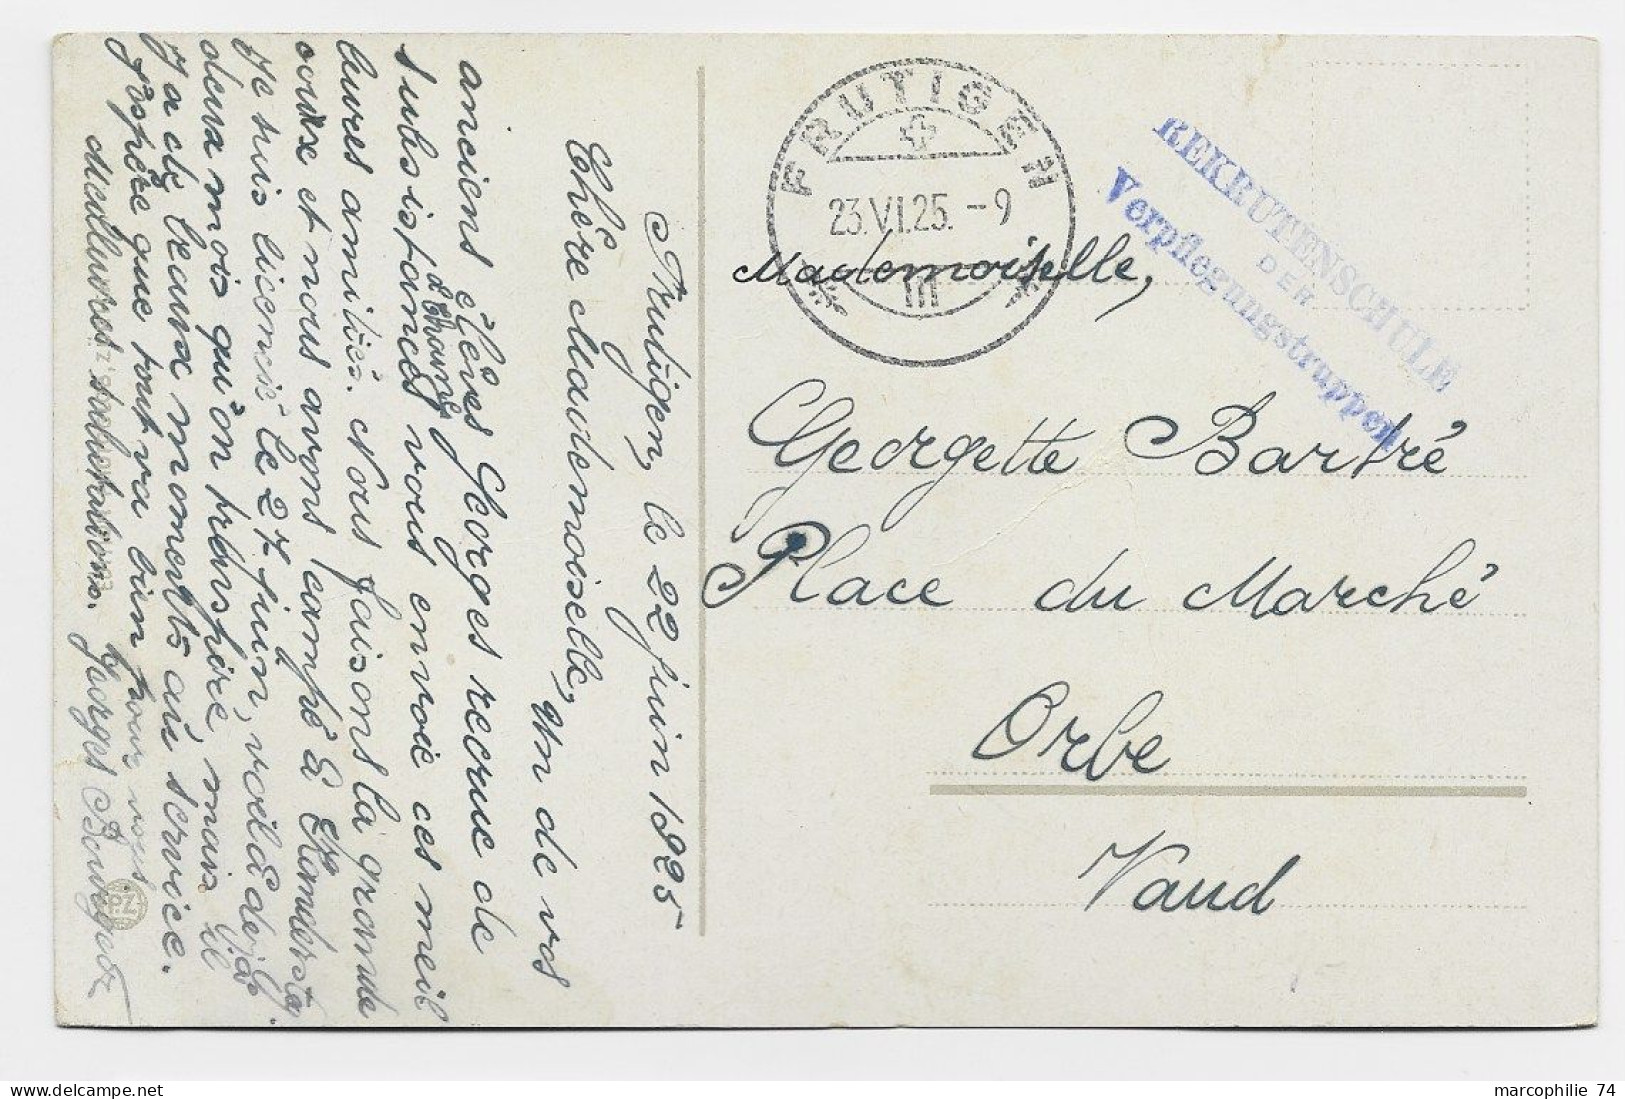 Frutigen, le 22 juin 1925
Chère Mademoiselle,
Un de vos
anciens élèves Georges recrue de
subsistances vous envoie ces meil
à Thoune
leures amitiés. Nous faisons la grande
course et nous avons campé à Kandersteg.
Je suis licencié le 27 juin, voilà déjà
deux mois qu'on transpire, mais il
y a de beaux moments au service.
J'espère que tout va bien pour vous
Meilleures salutations. Georges
FRUTIGEN
23.VI.25.-9
III
REKRUTENSCHULE
DER
Verpflegungstruppen
Mademoiselle,
Georgette Barbré
Place du Marché
Orbe
Vaud
PZ
marcophilie 74